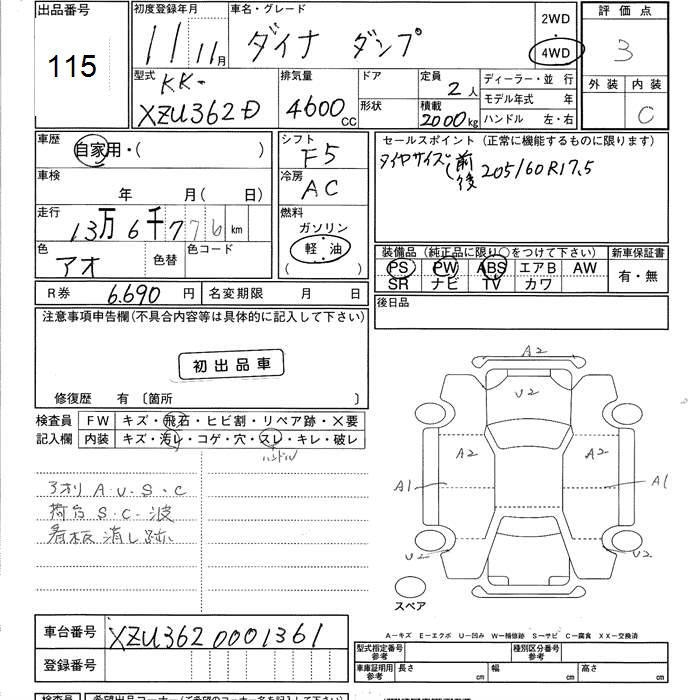 出品番号 初度登録年月 車名・グレード 2WD ・ 4WD 評価点
115 11 11月 ダイナ ダンプ 3
型式 KK- XZU362D 排気量 4600cc ドア 形状 定員 2人 積載 2000kg ディーラー・並 行 外装 内装
モデル年式 年 C
ハンドル 左・右
車歴 自家用・( ) シフト F5 セールスポイント(正常に機能するものに限ります)
タイヤサイズ(前 後 205/60R17.5
車検 年 月(日) 冷房 AC
走行 13万6千776km 燃料 ガソリン 軽・油 ( )
色 アオ 色替 色コード
装備品(純正品に限り○をつけて下さい) 新車保証書
PS PW ABS エアB AW 有・無
SR ナビ TV カワ
R券 6.690円 名変期限 月 日 後日品
注意事項申告欄(不具合内容等は具体的に記入して下さい)
初出品車
修復歴 有 〔箇所 〕
検査員 FW キズ・飛石・ヒビ割・リペア跡・×要
記入欄 内装 キズ・汚レ・コゲ・穴・スレ・キレ・破レ
ハンドル
アオリ A・U・S・C
荷台 S・C・波
看板消し跡
A2
U2
A2 A2
A1 A1
U2 U2
スペア
車台番号 XZU362 0001361
登録番号
A-キズ E-エクボ U-凹み W-補修跡 S-サビ C-腐食 XX-交換済
型式指定番号 参考 種別区分番号 参考
車庫証明用 参考 長さ cm 幅 cm 高さ cm
検査員 希望出品コーナー(ご希望のコーナー名を記入下さい)